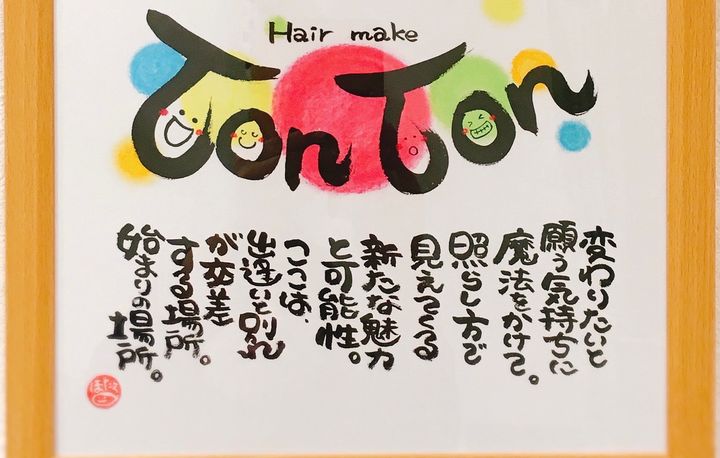 Hair make
TonTon
変わりたいと
願う気持ちに
魔法をかけて。
照らし方で
見えてくる
新たな魅力
と可能性。
ここは、
出逢いと別れ
が交差
する場所。
始まりの場所。